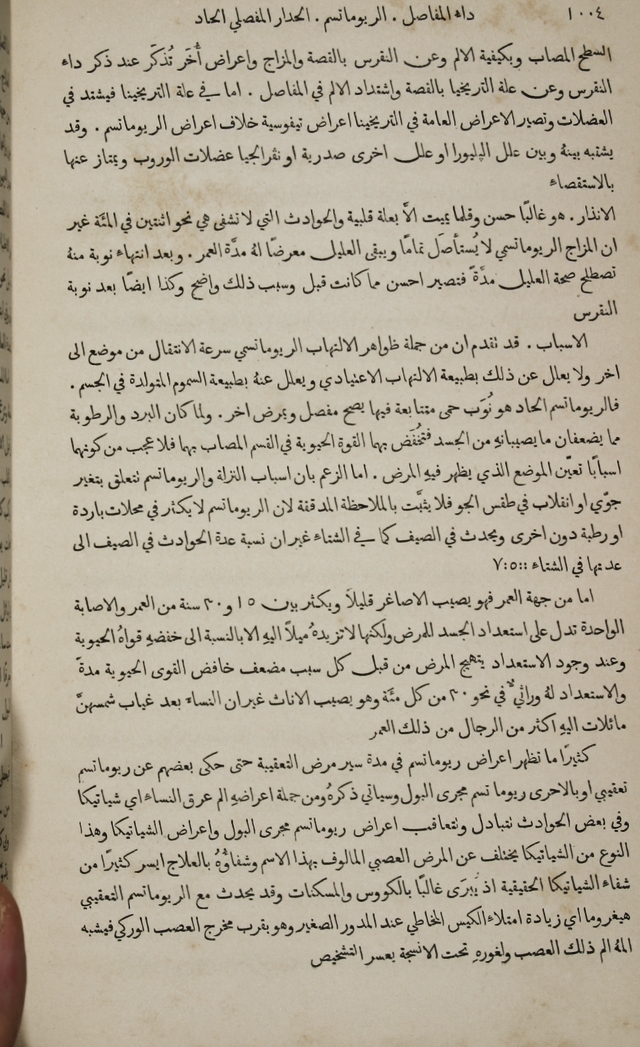 ١٠٠٤ داء المفاصل . الريوماتسم . الحدار المفصلي الحاد
السطح المصاب وبكيفية الالم وعن النقرس بالقصة والمزاج واعراض أُخَر تُذكَر عند ذكر داء
النقرس وعن علة التريخيا بالقصة واشتداد الالم في المفاصل . اما في علة التريخينا فيشتد في
العضلات وتصير الاعراض العامة في التريخينا اعراض تيفوسية خلاف اعراض الريوماتسم . وقد
يشتبه بينهُ وبين علل الپليورا او علل اخرى صدرية او نفرالجيا عضلات الوروب ويمتاز عنها
بالاستقصاء
الانذار . هو غالبًا حسن وقلما يميت الاَّ بعلة قلبية والحوادث التي لا تشفى هي نحو اثنتين في المئة غير
ان المزاج الريوماتسي لا يُستأصَل تمامًا ويبقى العليل معرضًا لهُ مدَّة العمر . وبعد انتهاء نوبة منهُ
تصطلح صحة العليل مدَّةً فتصير احسن مما كانت قبل وسبب ذلك واضح وكذا ايضًا بعد نوبة
النقرس
الاسباب . قد تقدم ان من جملة ظواهر الالتهاب الريوماتسي سرعة الانتقال من موضع الى
اخر ولا يعال عن ذلك بطبيعة الالتهاب الاعتيادي ويعلل عنهُ بطبيعة السموم المتولدة في الجسم .
فالريوماتسم الحاد هو نُوَب حمى متتابعة فيها يصح مفصل ويمرض اخر . ولما كان البرد والرطوبة
مما يضعفان ما يصيبانهِ من الجسد فتخفَض بهما القوة الحيوية في القسم المصاب بهما فلا عجب من كونهما
اسبابًا تعيّن الموضع الذي يظهر فيهِ المرض . اما الزعم بان اسباب النزلة والريوماتسم تتعلق بتغير
جوّي او انقلاب في طقس الجو فلا يثبَّت بالملاحظة المدققة لان الريوماتسم لا يكثر في محلات باردة
او رطبة دون اخرى ويحدث في الصيف كما في الشتاء غير ان نسبة عدة الحوادث في الصيف الى
عدتها في الشتاء ::٥:٧
اما من جهة العمر فهو يصيب الاصاغر قليلًا ويكثر بين ١٥ و٣٠ سنة من العمر والاصابة
الواحدة تدل على استعداد الجسد للمرض ولكنها لا تزيدهُ ميلًا اليهِ الا بالنسبة الى خفضهِ قواهُ الحيوية
وعند وجود الاستعداد يتهيج المرض من قبل كل سبب مضعف خافض القوى الحيوية مدةً
والاستعداد لهُ وراثيٌّ في نحو ٣٠ من كل مئة وهو يصيب الاناث غير ان النساء بعد غياب شمسهنَّ
مائلات اليهِ اكثر من الرجال من ذلك العمر
كثيرًا ما تظهر اعراض ريوماتسم في مدة سير مرض التعقيبة حتى حكى بعضهم عن ريوماتسم
تعقيبي او بالاحرى ريوماتسم مجرى البول وسياتي ذكرهُ ومن جملة اعراضهِ الم عرق النساء اي شياتيكا
وفي بعض الحوادث تتبادل وتتعاقب اعراض ريوماتسم مجرى البول واعراض الشياتيكا وهذا
النوع من الشياتيكا يختلف عن المرض العصبي المالوف بهذا الاسم وشفاؤُهُ بالعلاج ايسر كثيرًا من
شفاء الشياتيكا الحقيقية اذ يَبرَى غالبًا بالكووس والمسكنات وقد يحدث مع الريوماتسم التعقيبي
هيغروما اي زيادة امتلاء الكيس المخاطي عند المدور الصغير وهو بقرب مخرج العصب الوركي فيشبه
المهُ الم ذلك العصب ولغورهِ تحت الانسجة يعسر التشخيص